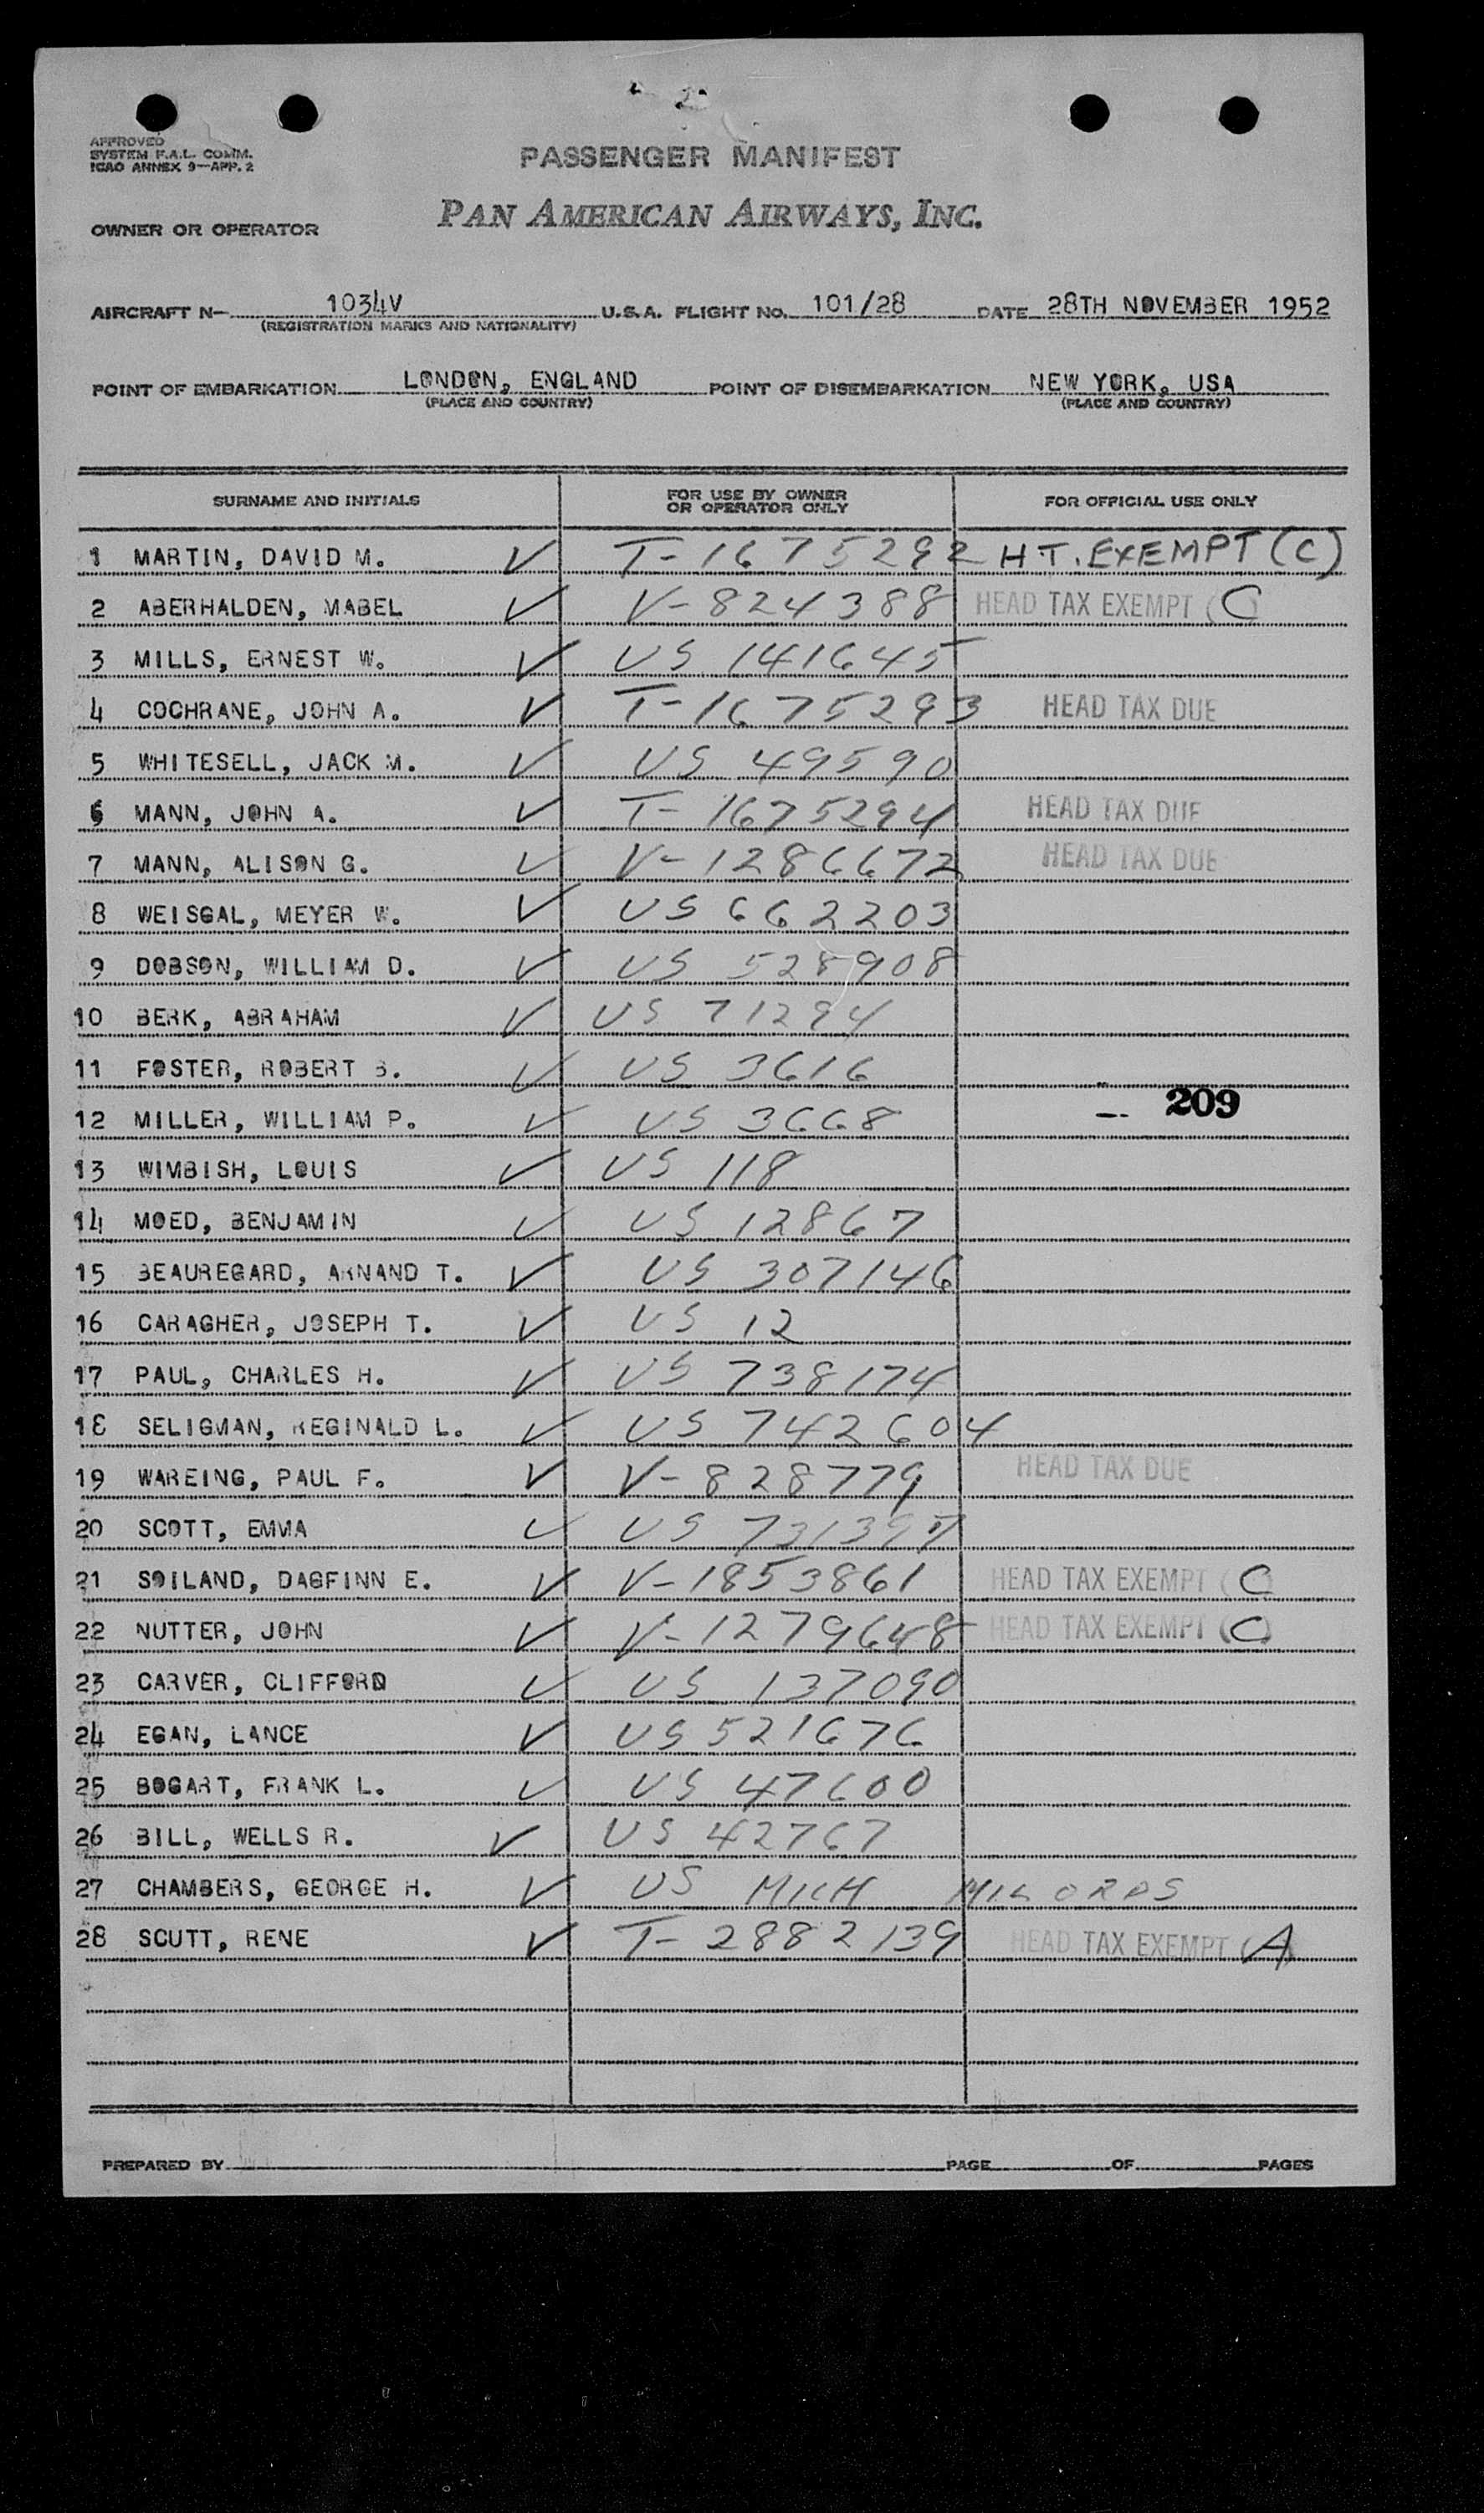 2
APPROVED
SYSTEM F.A.L. COMM.
ICAO ANNEX 9—APP. 2
PASSENGER MANIFEST
OWNER OR OPERATOR PAN AMERICAN AIRWAYS, INC.
AIRCRAFT N— 1034V U.S.A. FLIGHT NO. 101/28 DATE 28TH NOVEMBER 1952
(REGISTRATION MARKS AND NATIONALITY)
POINT OF EMBARKATION LONDON, ENGLAND POINT OF DISEMBARKATION NEW YORK, USA
(PLACE AND COUNTRY) (PLACE AND COUNTRY)
SURNAME AND INITIALS FOR USE BY OWNER OR OPERATOR ONLY FOR OFFICIAL USE ONLY
1 MARTIN, DAVID M. ✓ T-1675292 H.T. EXEMPT (C)
2 ABERHALDEN, MABEL ✓ V-824388 HEAD TAX EXEMPT (C)
3 MILLS, ERNEST W. ✓ US 141645
4 COCHRANE, JOHN A. ✓ T-1675293 HEAD TAX DUE
5 WHITESELL, JACK M. ✓ US 49590
6 MANN, JOHN A. ✓ T-1675294 HEAD TAX DUE
7 MANN, ALISON G. ✓ V-1286672 HEAD TAX DUE
8 WEISGAL, MEYER W. ✓ US 662203
9 DOBSON, WILLIAM D. ✓ US 528908
10 BERK, ABRAHAM ✓ US 71294
11 FOSTER, ROBERT B. ✓ US 3616
12 MILLER, WILLIAM P. ✓ US 3668 209
13 WIMBISH, LOUIS ✓ US 118
14 MOED, BENJAMIN ✓ US 12867
15 BEAUREGARD, ARNAND T. ✓ US 307146
16 CARAGHER, JOSEPH T. ✓ US 12
17 PAUL, CHARLES H. ✓ US 738174
18 SELIGMAN, REGINALD L. ✓ US 742604
19 WAREING, PAUL F. ✓ V-828779 HEAD TAX DUE
20 SCOTT, EMMA ✓ US
21 SOILAND, DAGFINN E. ✓ V-1853861 HEAD TAX EXEMPT (C)
22 NUTTER, JOHN ✓ V-1279648 HEAD TAX EXEMPT (C)
23 CARVER, CLIFFORD ✓ US 137090
24 EGAN, LANCE ✓ US 521676
25 BOGART, FRANK L. ✓ US 47600
26 BILL, WELLS R. ✓ US 42767
27 CHAMBERS, GEORGE H. ✓ US MIL ORDS
28 SCUTT, RENE ✓ T-2882139 HEAD TAX EXEMPT (A)
PREPARED BY PAGE OF PAGES